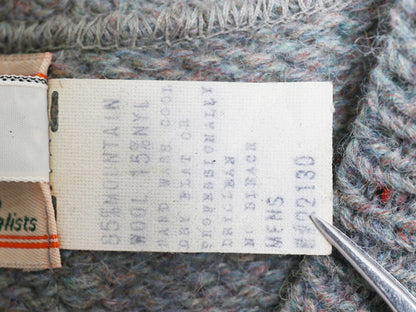 85%MOUNTAIN
WOOL 15%NYL
HAND WASH COOL
DRY FLAT OR
PROFESSIONALLY
DRYCLEAN
NO BLEACH
MENS
alists